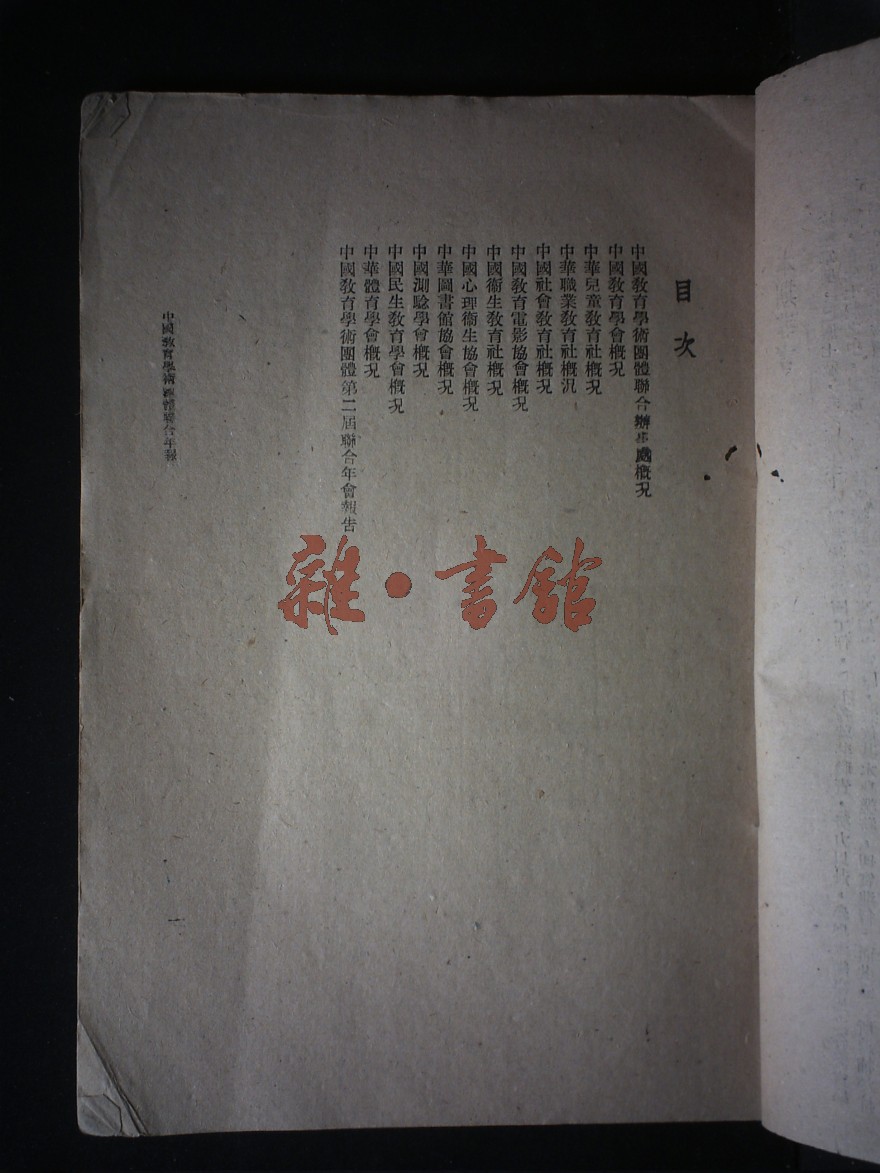 目次
中國教育學術團體聯合辦事處概况
中國教育學會概况
中華兒童教育社概况
中華職業教育社概況
中國社會教育社概况
中國教育電影協會概况
中國衞生教育社概况
中國心理衞生協會概况
中華圖書館協會概况
中國測驗學會概况
中國民生教育學會概况
中華體育學會概况
中國教育學術團體第二屆聯合年會報告
中國教育學術團體聯合年報
一
雜·書館